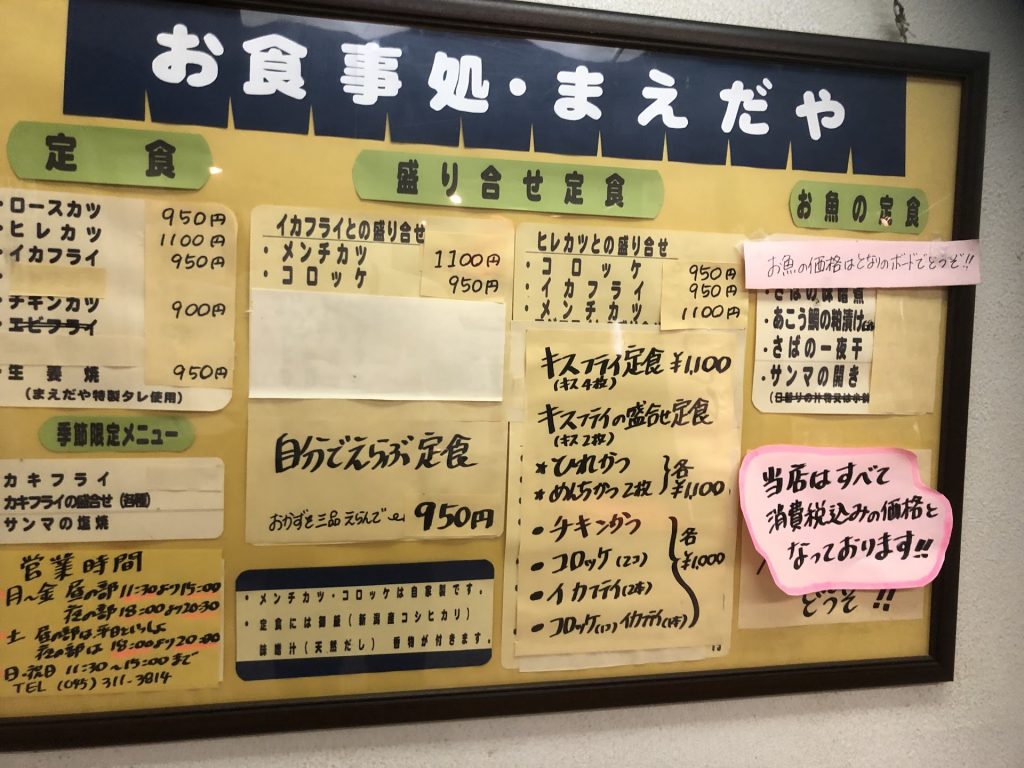 お食事処・まえだや
定食
・ロースカツ 950円
・ヒレカツ 1100円
・イカフライ 950円
・チキンカツ 900円
・エビフライ
・生姜焼 950円
(まえだや特製タレ使用)
季節限定メニュー
カキフライ
カキフライの盛合せ(各種)
サンマの塩焼
営業時間
月〜金 昼の部 11:30より15:00
夜の部 18:00より20:30
土 昼の部は平日といっしょ
夜の部は 18:00より20:00
日・祝日 11:30〜15:00まで
TEL (045) 311-3814
盛り合せ定食
イカフライとの盛り合せ
・メンチカツ 1100円
・コロッケ 950円
自分でえらぶ定食
おかずを三品えらんで 950円
・メンチカツ・コロッケは自家製です。
・定食には御飯(新潟産コシヒカリ)
味噌汁(天然だし) 香物が付きます。
ヒレカツとの盛り合せ
・コロッケ 950円
・イカフライ 950円
・メンチカツ 1100円
キスフライ定食 ¥1,100
(キス4枚)
キスフライの盛合せ定食
(キス2枚)
★ひれかつ
★めんちかつ2枚 各¥1,100
・チキンかつ
・コロッケ(2コ) 各¥1,000
・イカフライ(2本)
・コロッケ(1コ)イカフライ(1本)
お魚の定食
お魚の価格はとなりのボードでどうぞ!!
・さばの味噌煮
・あこう鯛の粕漬け
・さばの一夜干
・サンマの開き
当店はすべて
消費税込みの価格と
なっております!!
どうぞ!!